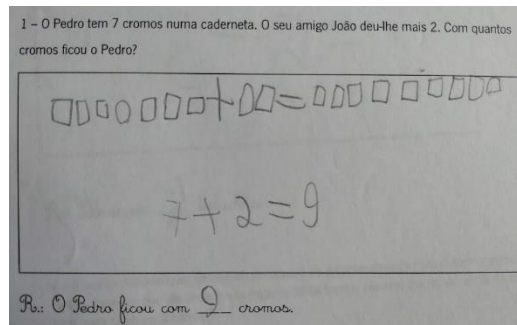 1 – O Pedro tem 7 cromos numa caderneta. O seu amigo João deu-lhe mais 2. Com quantos
cromos ficou o Pedro?
+ =
7 + 2 = 9
R.: O Pedro ficou com 9 cromos.